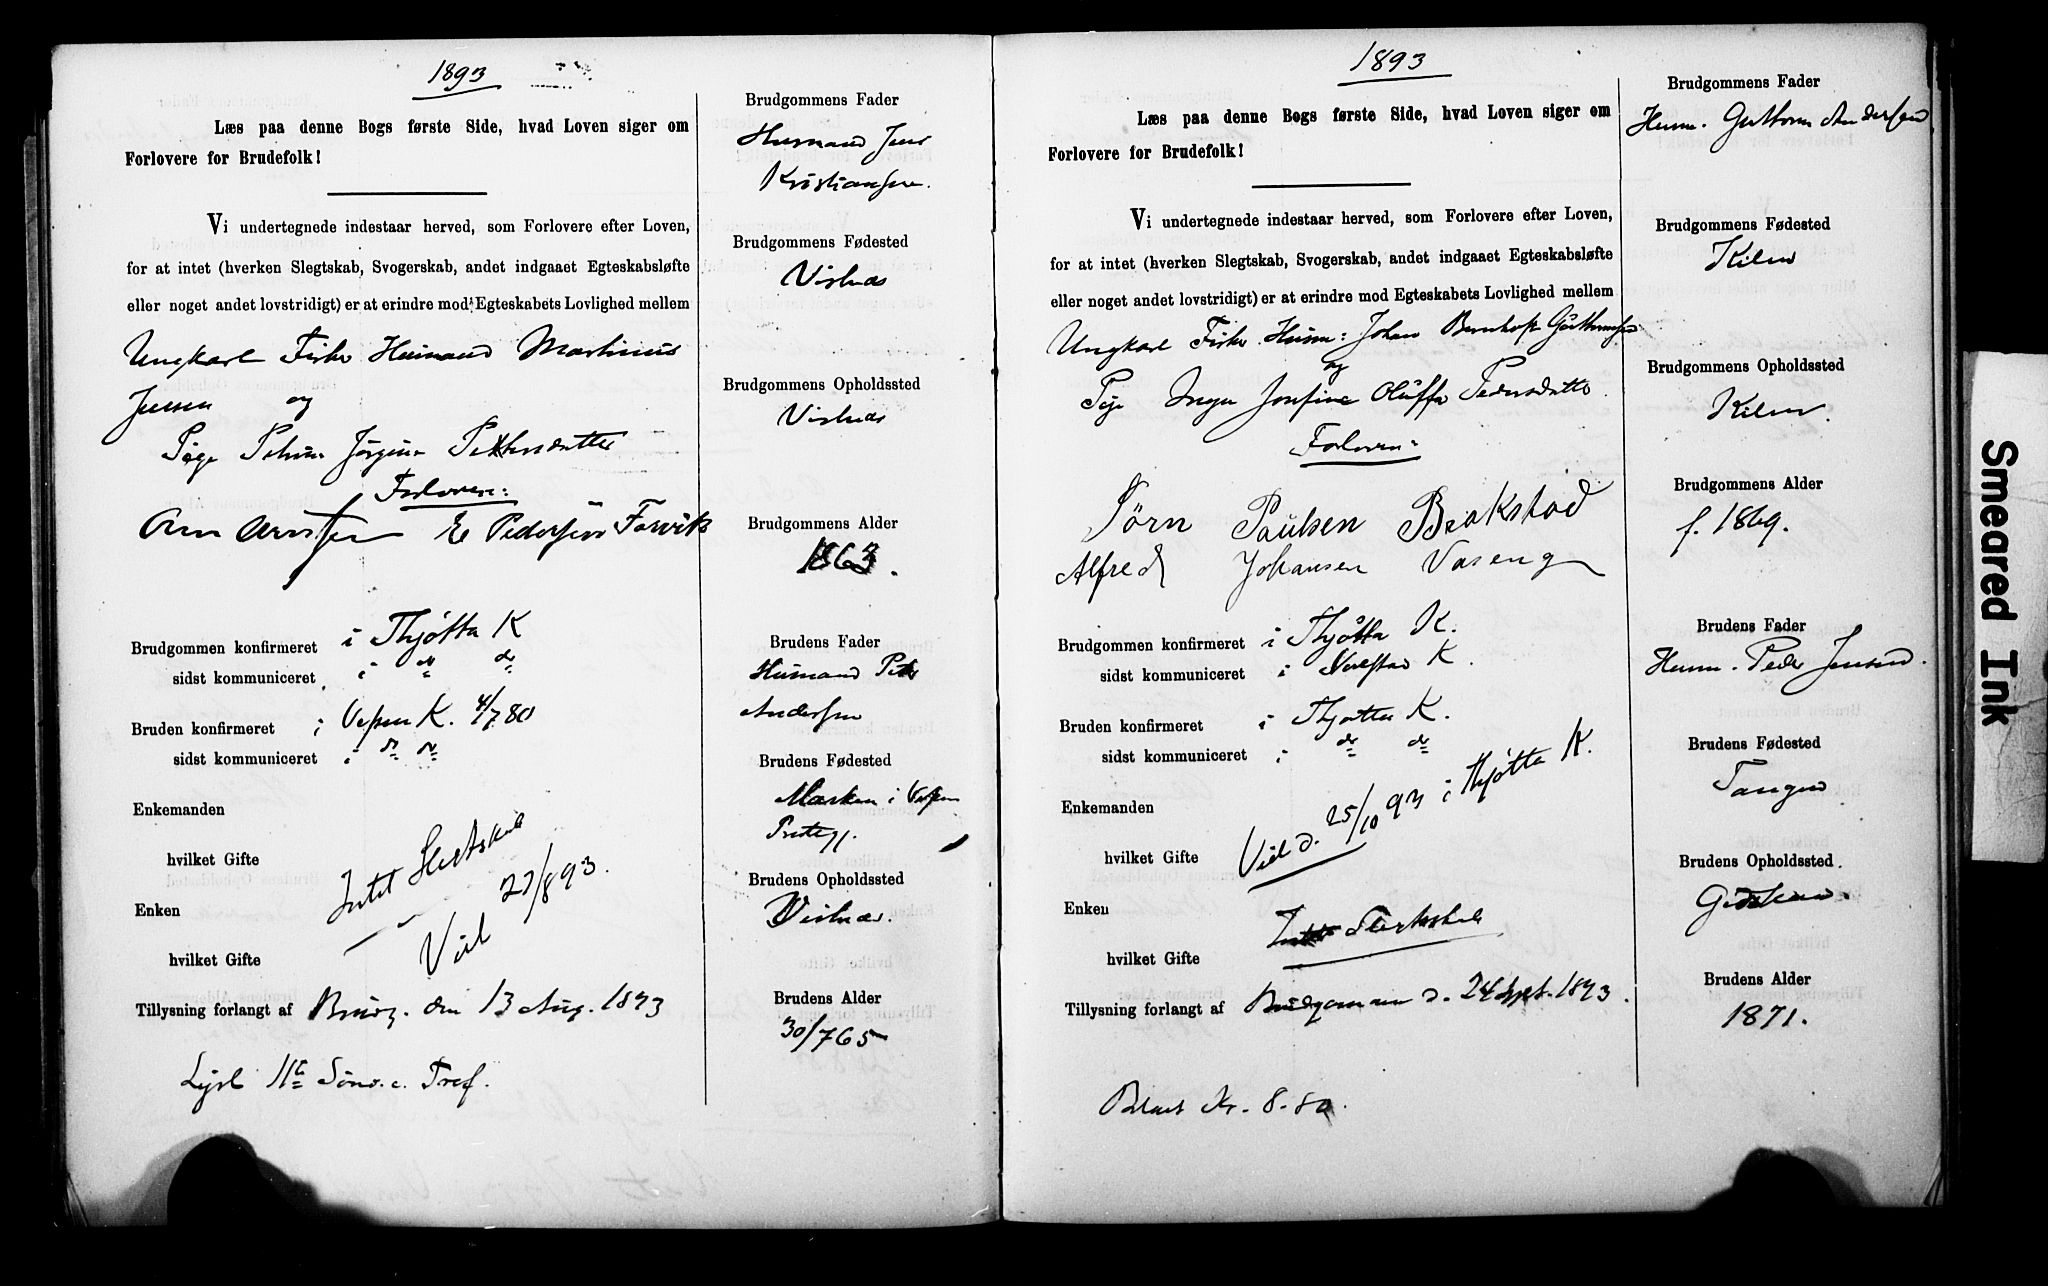 1893
Læs paa denne Bogs første Side, hvad Loven siger om
Forlovere for Brudefolk!
Vi undertegnede indestaar herved, som Forlovere efter Loven,
for at intet (hverken Slegtskab, Svogerskab, andet indgaaet Egteskabsløfte
eller noget andet lovstridigt) er at erindre mod Egteskabets Lovlighed mellem
Ungkarl Fisker Husmand Martinus
Jensen og
Pige Petrine Jørgine Pettersdatter
Forlovere:
Arn Arntsen E Pedersen Forvik
Brudgommen konfirmeret i Thjøtta K
sidst kommuniceret i do do
Bruden konfirmeret i Vefsen K. 4/7 80
sidst kommuniceret i do do
Enkemanden
hvilket Gifte
Intet Slectskab
Enken
Viel 27/8 93.
hvilket Gifte
Tillysning forlangt af Brudg. den 13 Aug. 1893
Lyst 11te Sønd. e. Tref.
Brudgommens Fader
Husmand Jens
Kristiansen.
Brudgommens Fødested
Visthus
Brudgommens Opholdssted
Visthus
Brudgommens Alder
1863.
Brudens Fader
Husmand Peter
Andersen
Brudens Fødested
Marken i Vefsen
Prstegj.
Brudens Opholdssted
Visthus.
Brudens Alder
30/7 65
1893
Læs paa denne Bogs første Side, hvad Loven siger om
Forlovere for Brudefolk!
Vi undertegnede indestaar herved, som Forlovere efter Loven,
for at intet (hverken Slegtskab, Svogerskab, andet indgaaet Egteskabsløfte
eller noget andet lovstridigt) er at erindre mod Egteskabets Lovlighed mellem
Ungkarl Fisker Husm: Johan Bernhof Guthormsen
og
Pige Inga Josefine Oluffa Pedersdatter.
Forlovere:
Sørn Paulsen Brakstad
Alfred Johansen Vaseng
Brudgommen konfirmeret i Thjøtta K.
sidst kommuniceret i K.
Bruden konfirmeret i Thjøtta K.
sidst kommuniceret i do do
Enkemanden
hvilket Gifte
Viel d. 25/10 93 i Thjøtta K.
Enken
Intet Slectskab
hvilket Gifte
Tillysning forlangt af Brudgommen d. 24 Sept. 1893.
Betalt Kr. 8.80.
Brudgommens Fader
Husm. Guthorm Andersen
Brudgommens Fødested
Kilen
Brudgommens Opholdssted
Kilen
Brudgommens Alder
f. 1869.
Brudens Fader
Husm. Peder Jensen.
Brudens Fødested
Tangen
Brudens Opholdssted.
Brudens Alder
1871.
Smeared Ink